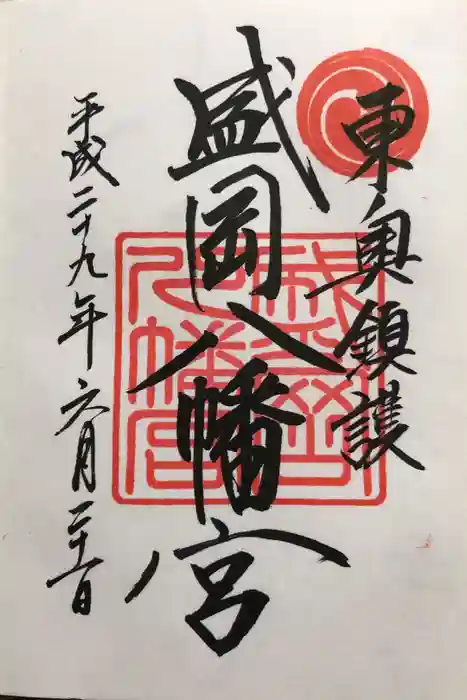 東奥鎮護
盛岡八幡宮
平成二十九年六月二十一日
盛岡八幡宮